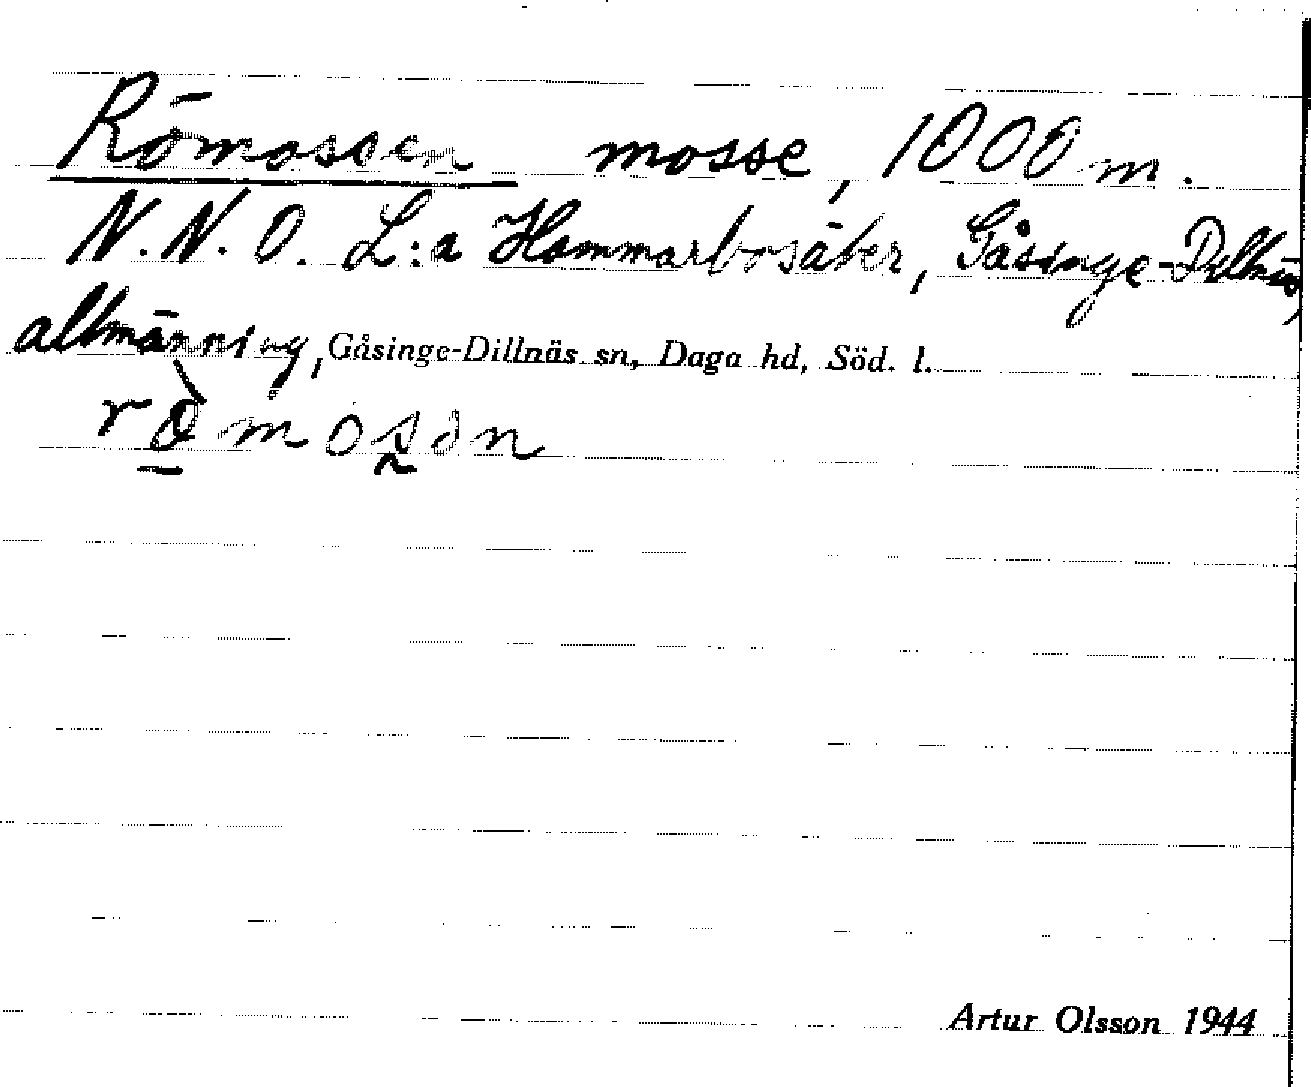 Römossen mosse, 1000 m.
N.N.O. L:a Hammarbosäter, Gåsinge-Dillnäs
allmänning, Gåsinge-Dillnäs sn, Daga hd, Söd. l.
Artur Olsson 1944